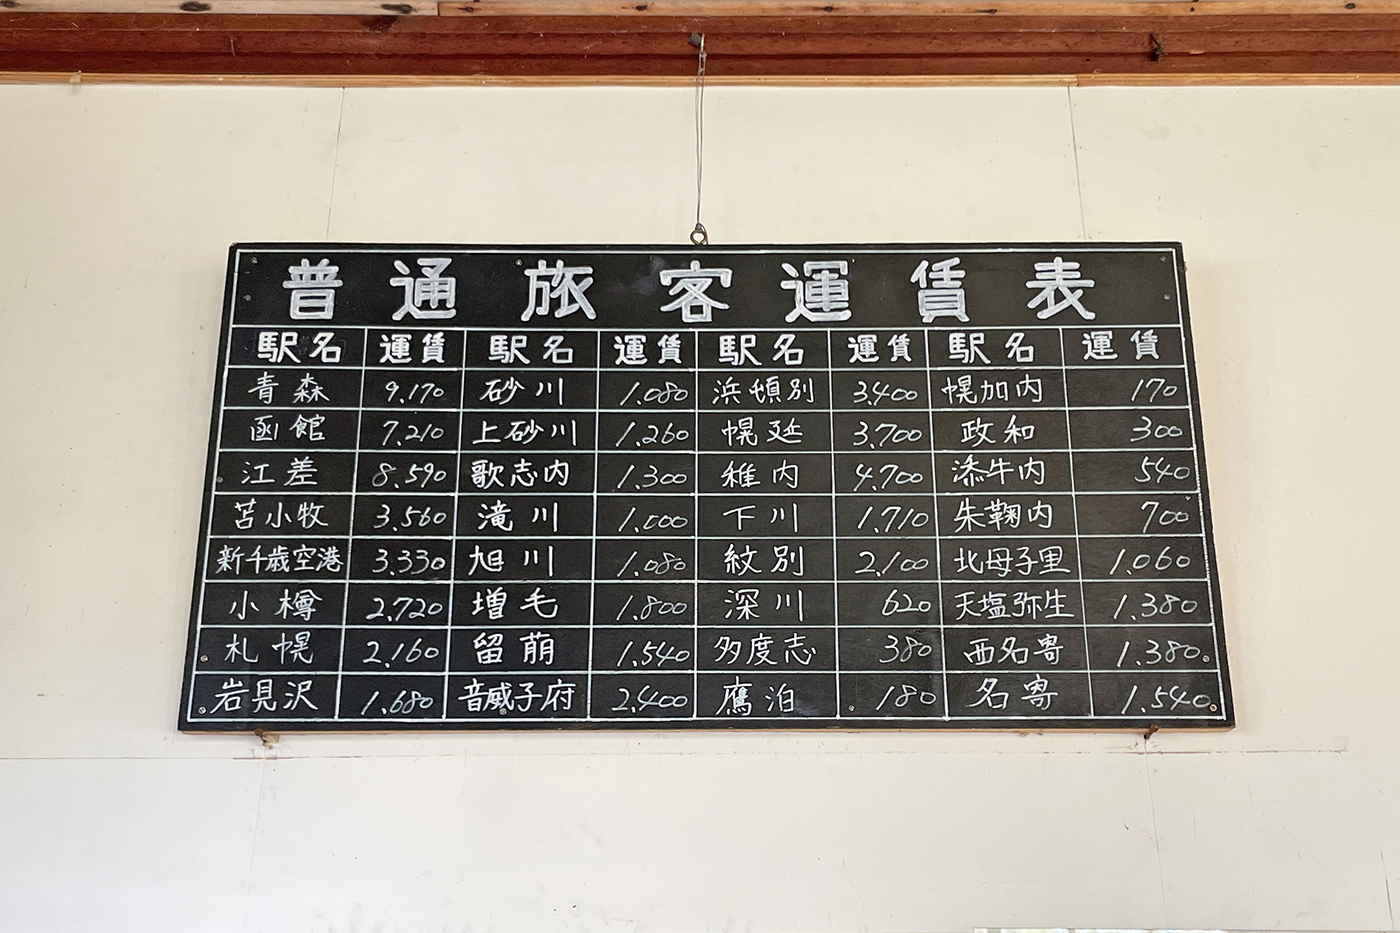 普通旅客運賃表
駅名 運賃 駅名 運賃 駅名 運賃 駅名 運賃
青森 9.170 砂川 1.080 浜頓別 3.400 幌加内 170
函館 7.210 上砂川 1.260 幌延 3.700 政和 300
江差 8.590 歌志内 1.300 稚内 4.700 添牛内 540
苫小牧 3.560 滝川 1.000 下川 1.710 朱鞠内 700
新千歳空港 3.330 旭川 1.080 紋別 2.100 北母子里 1.060
小樽 2.720 増毛 1.800 深川 620 天塩弥生 1.380
札幌 2.160 留萌 1.540 多度志 380 西名寄 1.380
岩見沢 1.680 音威子府 2.400 鷹泊 180 名寄 1.540